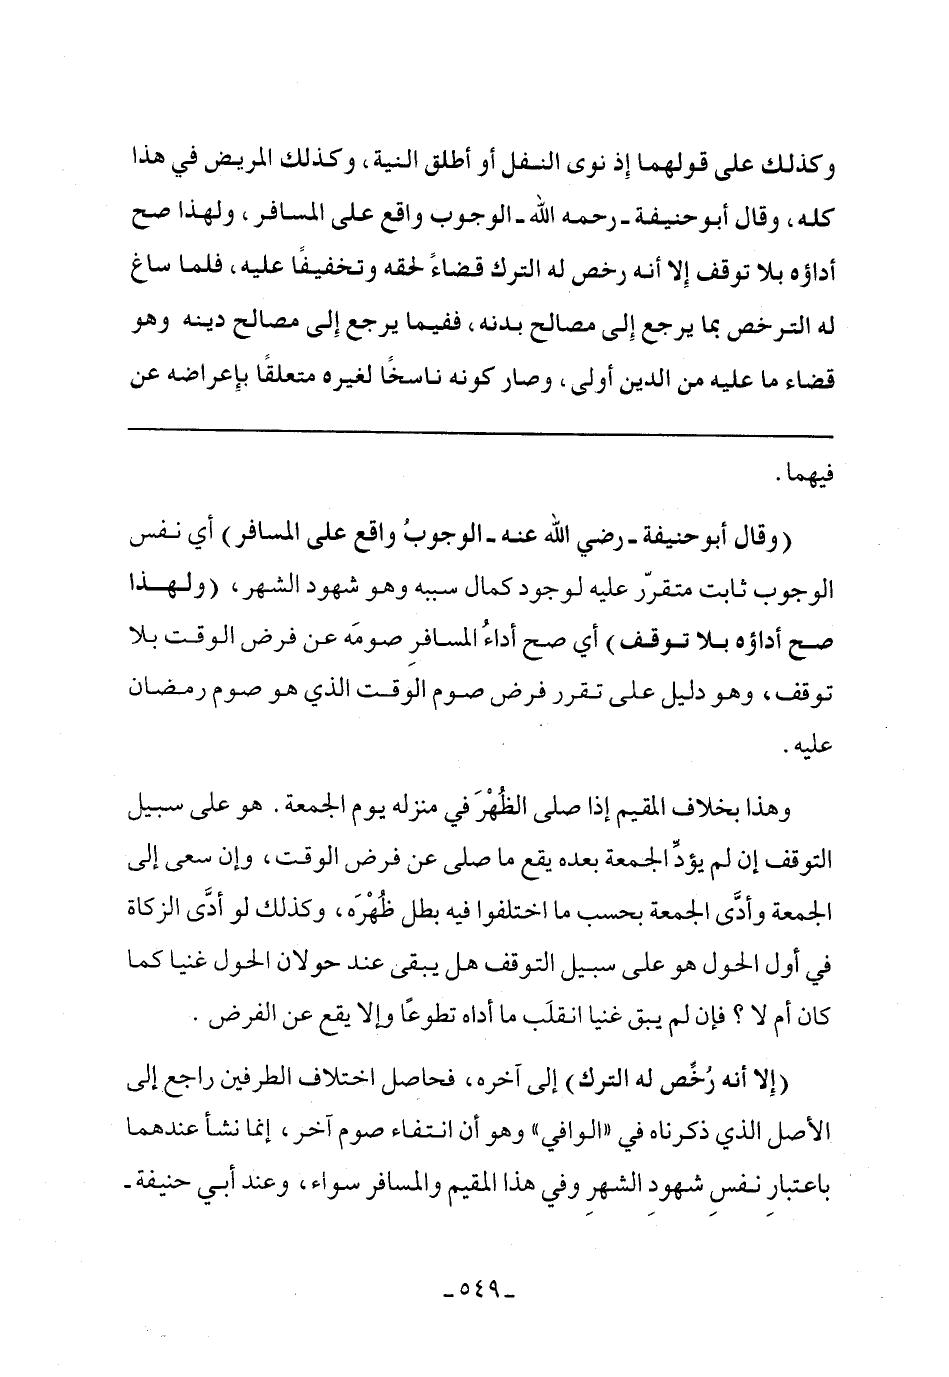 وكذلك على قولهما إذ نوى النفل أو أطلق النية، وكذلك المريض في هذا
كله، وقال أبو حنيفة ـ رحمه الله ـ الوجوب واقع على المسافر، ولهذا صح
أداؤه بلا توقف إلا أنه رخص له الترك قضاءً لحقه وتخفيفًا عليه، فلما ساغ
له الترخص بما يرجع إلى مصالح بدنه، ففيما يرجع إلى مصالح دينه وهو
قضاء ما عليه من الدين أولى، وصار كونه ناسخًا لغيره متعلقًا بإعراضه عن
فيهما .
(وقال أبو حنيفة ـ رضي الله عنه ـ الوجوبُ واقع على المسافر) أي نفس
الوجوب ثابت متقررّ عليه لوجود كمال سببه وهو شهود الشهر، (ولهذا
صح أداؤه بلا توقف) أي صح أداءُ المسافرِ صومَه عن فرض الوقت بلا
توقف، وهو دليل على تقرر فرض صوم الوقت الذي هو صوم رمضان
عليه .
وهذا بخلاف المقيم إذا صلى الظُهْرَ في منزله يوم الجمعة . هو على سبيل
التوقف إن لم يؤدِّ الجمعة بعده يقع ما صلى عن فرض الوقت، وإن سعى إلى
الجمعة وأدَّى الجمعة بحسب ما اختلفوا فيه بطل ظُهْرَه، وكذلك لو أدَّى الزكاة
في أول الحول هو على سبيل التوقف هل يبقى عند حولان الحول غنيا كما
كان أم لا ؟ فإن لم يبق غنيا انقلَب ما أداه تطوعًا وإلا يقع عن الفرض .
(إلا أنه رُخِّص له الترك) إلى آخره، فحاصل اختلاف الطرفين راجع إلى
الأصل الذي ذكرناه في «الوافي» وهو أن انتفاء صوم آخر، إنما نشأ عندهما
باعتبارِ نفسِ شهودِ الشهرِ وفي هذا المقيم والمسافر سواء، وعند أبي حنيفة ـ
ـ ٥٤٩ ـ